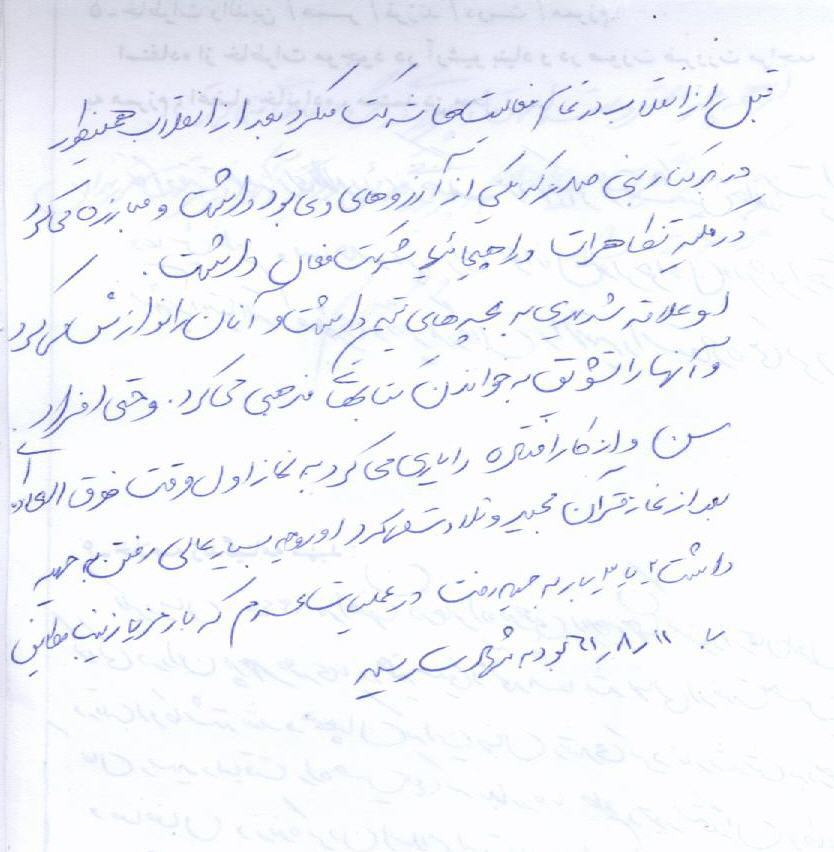 قبل از انقلاب در تمام فعالیتها شرکت میکرد بعد از انقلاب همینطور
در یکی از آرزوهای وی بود داشت و مبارزه می کرد
در کلیه تظاهرات و راهپیمائیها شرکت فعال داشت.
او علاقه شدیدی به بچه های یتیم داشت و آنان را نوازش می کرد
و آنها را تشویق به خواندن کتابهای مذهبی می کرد. وحتی افراد
مسن و از کار افتاده را یاری می کرد به نماز اول وقت فوق العاده
بعد از نماز قرآن مجید و تلاوت میکرد او روحیه بسیار عالی رفتن به جبهه
داشت ۲ یا ۳ بار به جبهه رفت در عملیات محرم که با رمز یا زینب
۱۱ر۸ر۶۱ بود به شهادت رسید